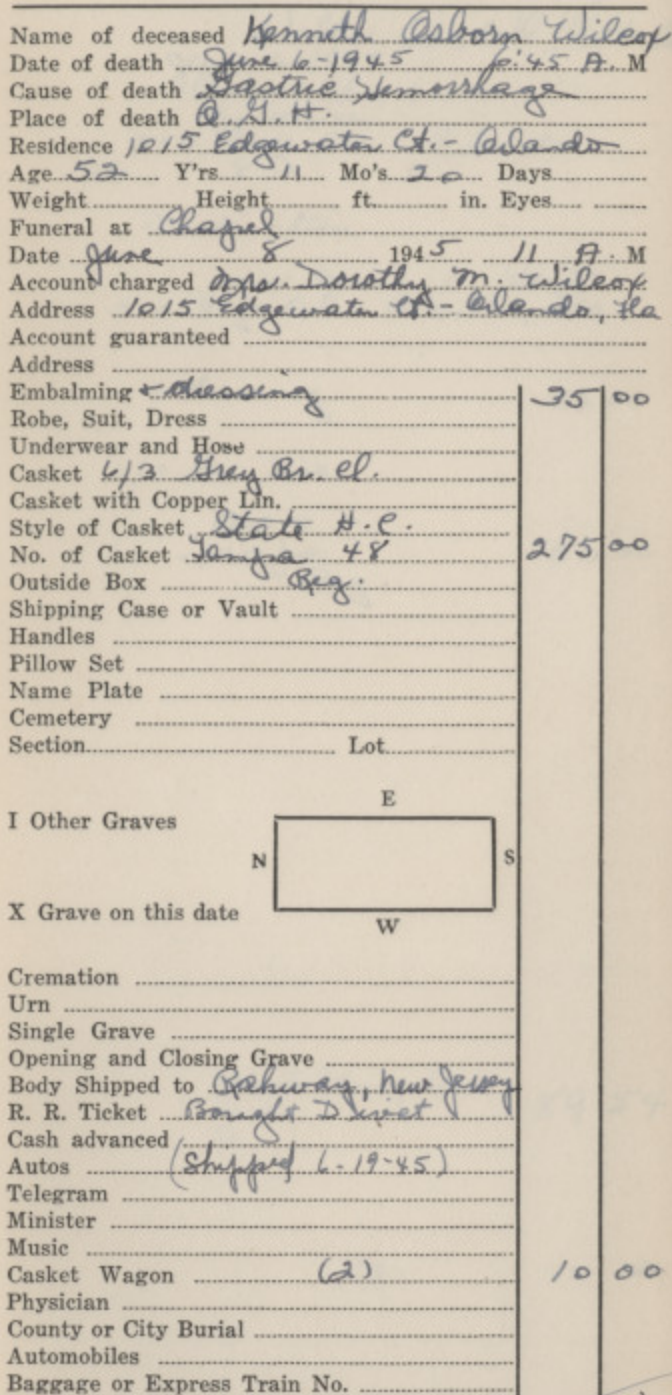 Name of deceased Kenneth Osborn Wilcox
Date of death June 6-1945 6:45 A. M
Cause of death Gastric Hemorrhage
Place of death O.G.H.
Residence 1015 Edgewater Ct.- Orlando
Age 52 Y'rs 11 Mo's 20 Days
Weight Height ft. in. Eyes
Funeral at Chapel
Date June 8 1945 11 A. M
Account charged Mrs. Dorothy M. Wilcox
Address 1015 Edgewater Ct.- Orlando, Fla
Account guaranteed
Address
Embalming & dressing 35 00
Robe, Suit, Dress
Underwear and Hose
Casket 6/3 Grey Br. Cl.
Casket with Copper Lin.
Style of Casket State H.C.
No. of Casket Tampa 48 275 00
Outside Box Reg.
Shipping Case or Vault
Handles
Pillow Set
Name Plate
Cemetery
Section Lot
E
I Other Graves
N S
X Grave on this date
W
Cremation
Urn
Single Grave
Opening and Closing Grave
Body Shipped to Rahway, New Jersey
R. R. Ticket Bought Direct
Cash advanced
Autos (Shipped 6-19-45)
Telegram
Minister
Music
Casket Wagon (2) 10 00
Physician
County or City Burial
Automobiles
Baggage or Express Train No.